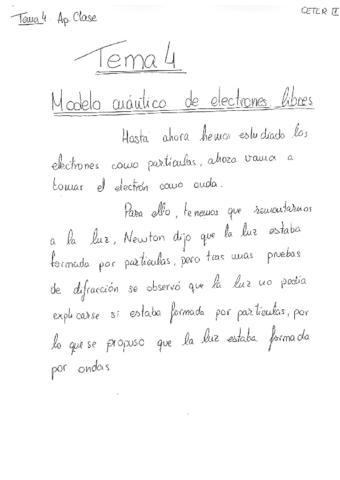 Tema 4 Ap. Clase
CETER II
Tema 4
Modelo cuántico de electrones libres
Hasta ahora hemos estudiado los
electrones como partículas, ahora vamos a
tomar el electrón como onda.
Para ello, tenemos que remontarnos
a la luz, Newton dijo que la luz estaba
formada por partículas, pero tras unas pruebas
de difracción se observó que la luz no podía
explicarse si estaba formada por partículas, por
lo que se propuso que la luz estaba formada
por ondas